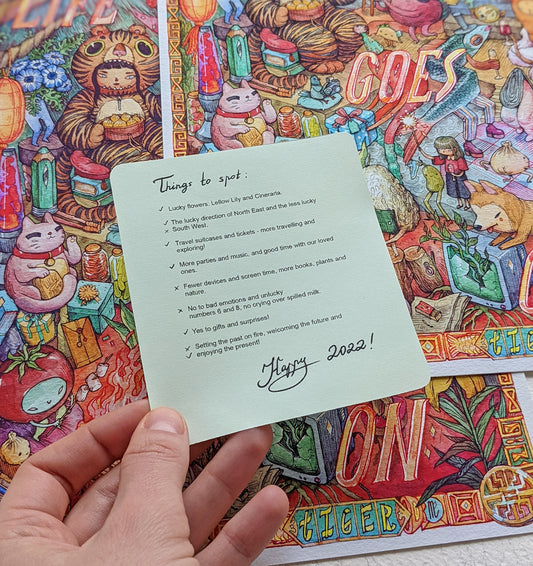 LIFE
GOES
Things to spot:
✓ Lucky flowers. Lellow Lily and Cineraria.
✓ The lucky direction of North East and the less lucky
× South West.
✓ Travel suitcases and tickets - more travelling and
exploring!
✓ More parties and music, and good time with our loved
ones.
× Fewer devices and screen time, more books, plants and
nature.
× No to bad emotions and unlucky
numbers 6 and 8, no crying over spilled milk.
✓ Yes to gifts and surprises!
× Setting the past on fire, welcoming the future and
✓ enjoying the present!
Happy 2022!
TIGER
ON
TIGER